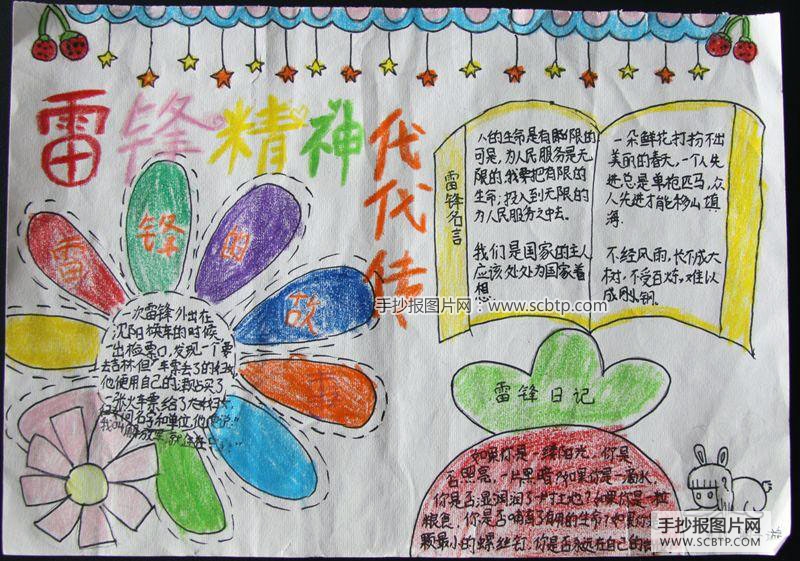 雷锋精神代代传
雷锋的故事
一次雷锋外出在
沈阳换车的时候,
出检票口,发现一个
去吉林,但车票丢了的
他使用自己的津贴买了
一张火车票,给了大
名字和单位,他
我叫解放军,就住在
雷锋名言
人的生命是有限的
可是,为人民服务是无
限的,我要把有限的
生命,投入到无限的
为人民服务之中去。
我们是国家的主人
应该处处为国家着
想
一朵鲜花打扮不出
美丽的春天,一个人先
进总是单枪匹马,众
人先进才能移山填
海.
不经风雨,长不成大
树,不受百炼,难以
成刚钢.
手抄报图片网:www.scbtp.com
雷锋日记
如果你是一缕阳光,你是
否照亮一片黑暗?如果你是一滴水,
你是否滋润了一寸土地?如果你是一粒
粮食,你是否哺育了有用的生命?如果你
颗最小的螺丝钉,你是否永远在自己的
手抄报图片网
WWW.SCBTP.COM